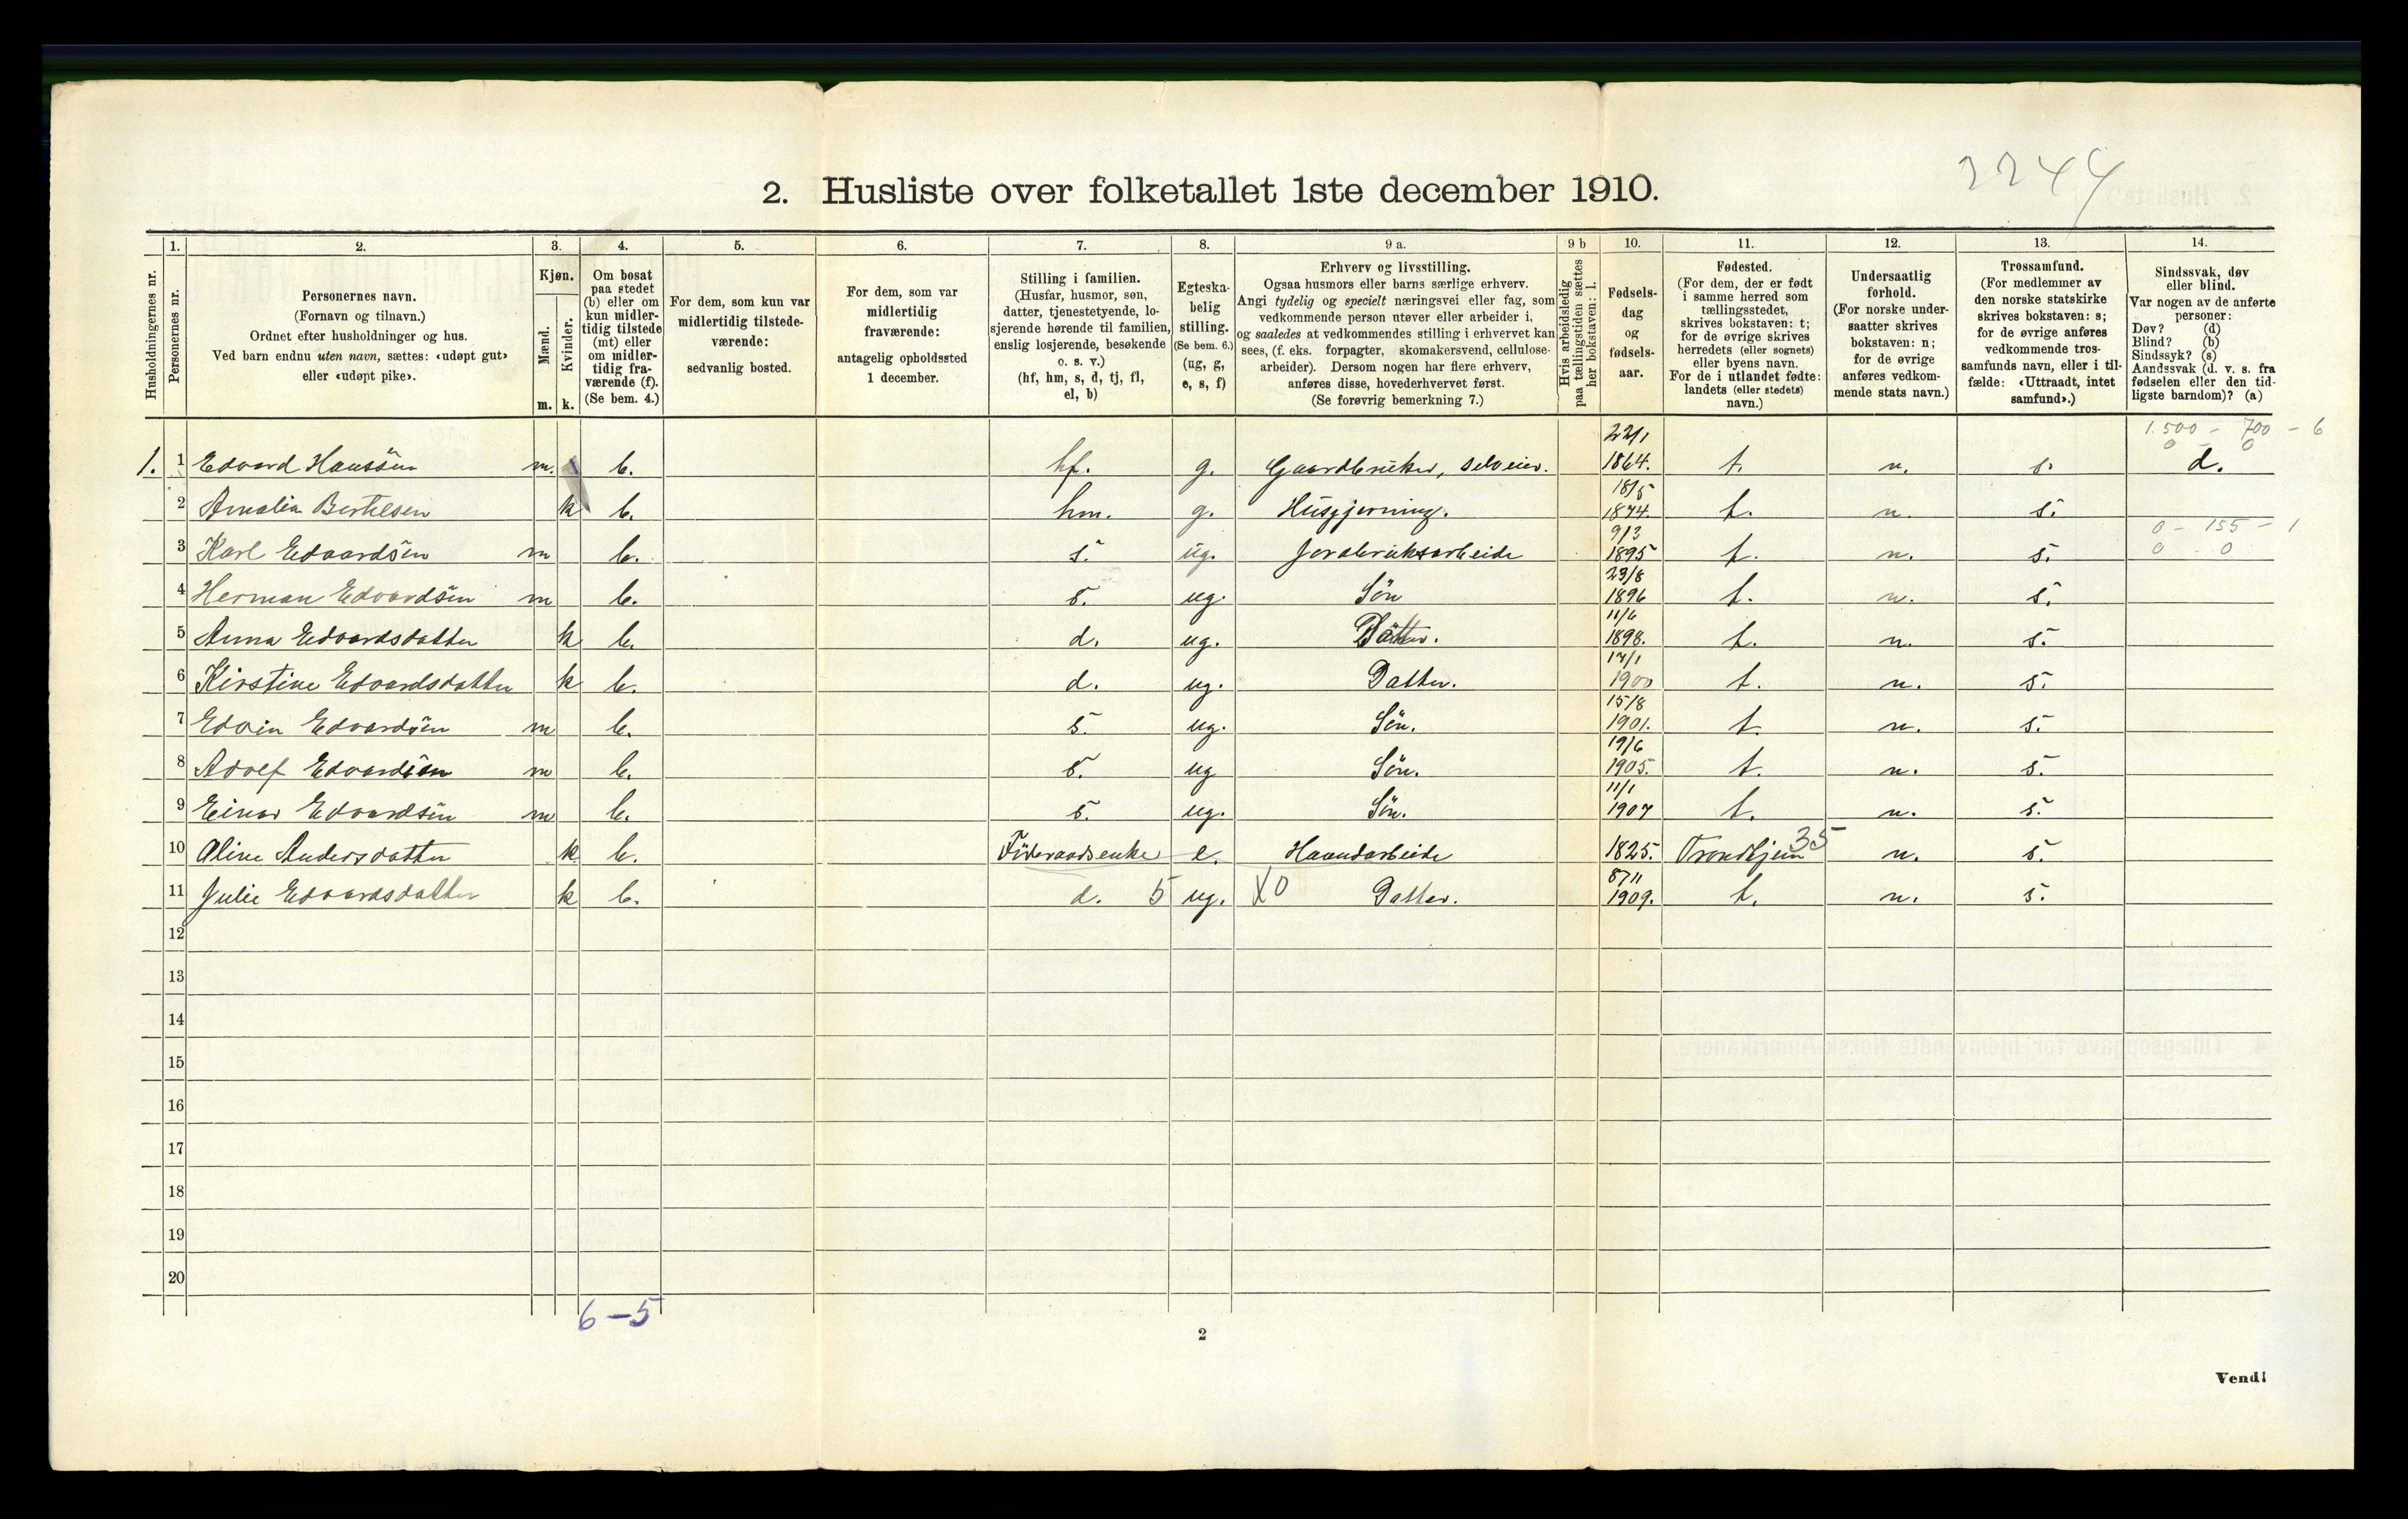 2244
2. Husliste over folketallet 1ste december 1910.
Husholdningernes nr.
1.
Personernes nr.
2.
Personernes navn.
(Fornavn og tilnavn.)
Ordnet efter husholdninger og hus.
Ved barn endnu uten navn, sættes: «udøpt gut»
eller «udøpt pike».
3.
Kjøn.
Mænd.
Kvinder.
m. k.
4.
Om bosat
paa stedet
(b) eller om
kun midler-
tidig tilstede
(mt) eller
om midler-
tidig fra-
værende (f).
(Se bem. 4.)
5.
For dem, som kun var
midlertidig tilstede-
værende:
sedvanlig bosted.
6.
For dem, som var
midlertidig
fraværende:
antagelig opholdssted
1 december.
7.
Stilling i familien.
(Husfar, husmor, søn,
datter, tjenestetyende, lo-
sjerende hørende til familien,
enslig losjerende, besøkende
o. s. v.)
(hf, hm, s, d, tj, fl,
el, b)
8.
Egteska-
belig
stilling.
(Se bem. 6.)
(ug, g,
e, s, f)
9 a.
Erhverv og livsstilling.
Ogsaa husmors eller barns særlige erhverv.
Angi tydelig og specielt næringsvei eller fag, som
vedkommende person utøver eller arbeider i,
og saaledes at vedkommendes stilling i erhvervet kan
sees, (f. eks. forpagter, skomakersvend, cellulose-
arbeider). Dersom nogen har flere erhverv,
anføres disse, hovederhvervet først.
(Se forøvrig bemerkning 7.)
9 b
Hvis arbeidsledig
paa tællingstiden sættes
her bokstaven: l.
10.
Fødsels-
dag
og
fødsels-
aar.
11.
Fødested.
(For dem, der er født
i samme herred som
tællingsstedet,
skrives bokstaven: t;
for de øvrige skrives
herredets (eller sognets)
eller byens navn.
For de i utlandet fødte:
landets (eller stedets)
navn.)
12.
Undersaatlig
forhold.
(For norske under-
saatter skrives
bokstaven: n;
for de øvrige
anføres vedkom-
mende stats navn.)
13.
Trossamfund.
(For medlemmer av
den norske statskirke
skrives bokstaven: s;
for de øvrige anføres
vedkommende tros-
samfunds navn, eller i til-
fælde: «Uttraadt, intet
samfund».)
14.
Sindssvak, døv
eller blind.
Var nogen av de anførte
personer:
Døv? (d)
Blind? (b)
Sindssyk? (s)
Aandssvak (d. v. s. fra
fødselen eller den tid-
ligste barndom)? (a)
1.500 - 700 - 6
0 - 0
1. 1 Edvard Hanssen m. b. hf. g. Gaardbruker, selveier. 22/1 1864. t. n. s. d.
2 Amalia Bertelsen k b. hm. g. Husgjerning. 18/5 1874. t. n. s.
0 - 155 - 1
0 - 0
3 Karl Edvardsen m b. s. ug. Jordbruksarbeide 9/3 1895 t. n. s.
4 Herman Edvardsen m b. s. ug. Sön 29/8 1896 t. n. s.
5 Anna Edvardsdatter k b. d. ug. Datter. 11/6 1898. t. n. s.
6 Kirstine Edvardsdatter k b. d. ug. Datter. 17/1 1900 t. n. s.
7 Edvin Edvardsen m b. s. ug. Sön. 15/8 1901. t. n. s.
8 Adolf Edvardsen m b. s. ug Sön. 19/6 1905. t. n. s.
9 Einar Edvardsen m b. s. ug. Sön. 11/1 1907 t. n. s.
10 Oline Andersdatter k. b. Föderaadsenke e. Haandarbeide 1825. Trondhjem 35 n. s.
11 Julie Edvardsdatter k b. d. 5 ug. X0 Datter. 8/11 1909. t. n. s.
12
13
14
15
16
17
18
19
20
6-5
2
Vend!